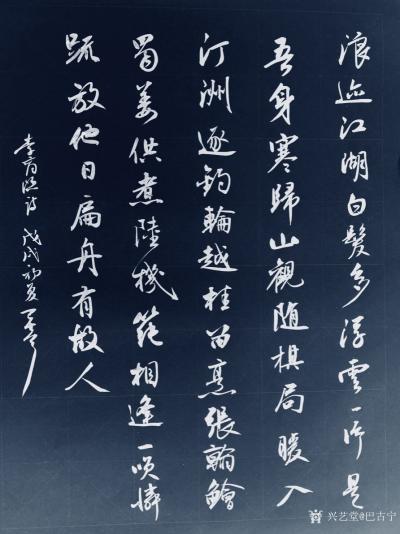 浪迹江湖白髮多浮雲一片是
吾身寒歸山觀随棋局暖入
汀洲逐釣輪越桂留烹張翰鱠
蜀姜供煮陸機蒓相逢一笑憐
疏放他日扁舟有故人
李商隐詩 戊戌初夏
兴艺堂@巴古宁